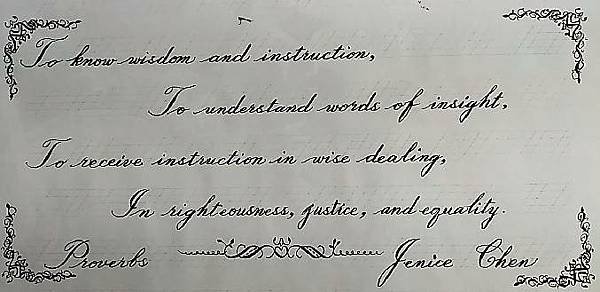 To know wisdom and instruction,
To understand words of insight,
To receive instruction in wise dealing,
In righteousness, justice, and equality.
Proverbs Jenice Chen